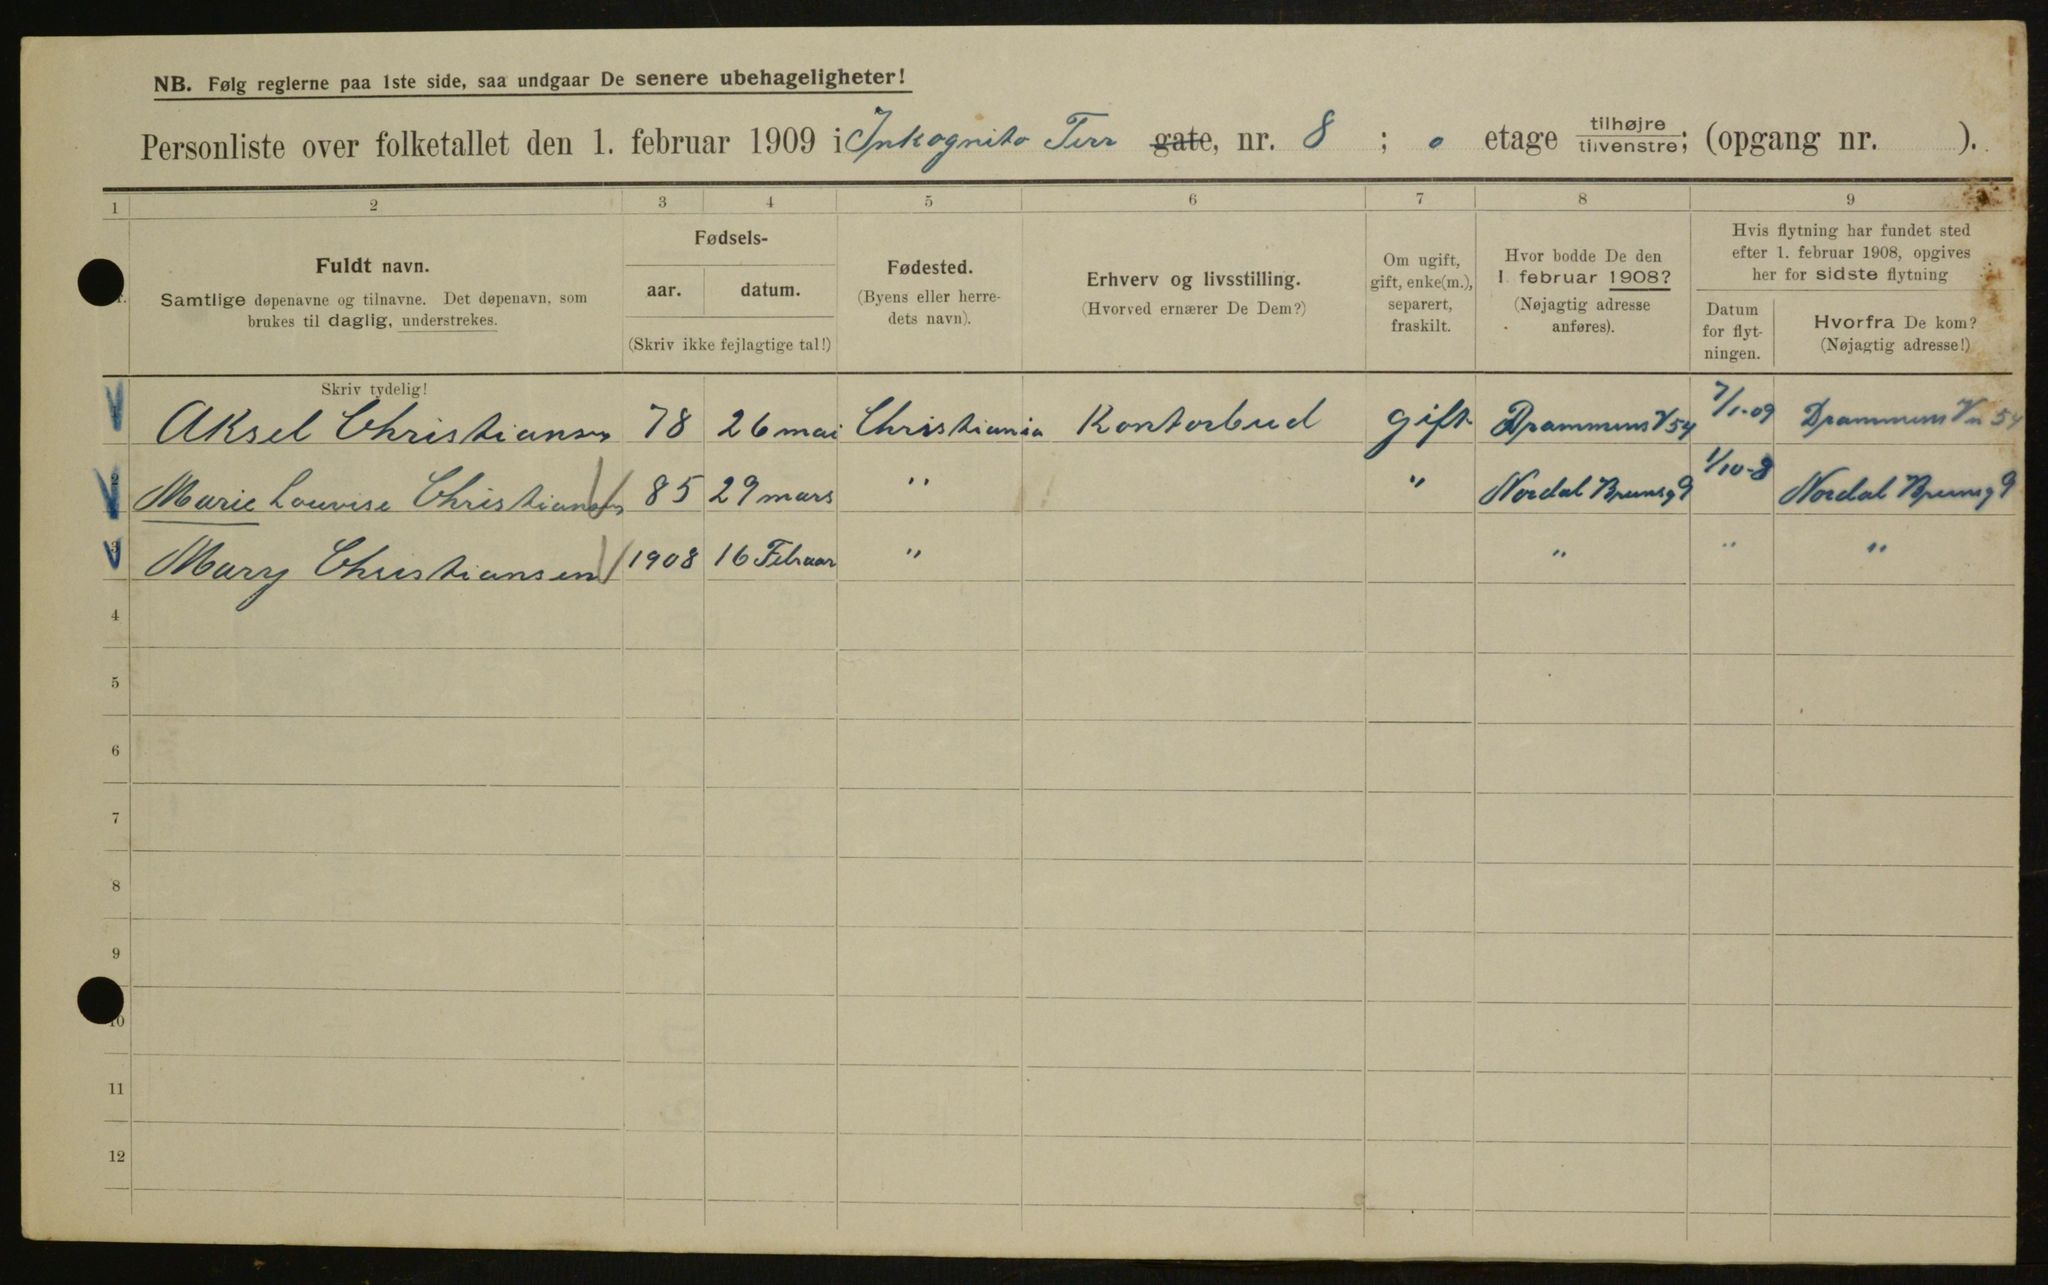 NB. Følg reglerne paa 1ste side, saa undgaar De senere ubehageligheter!
Personliste over folketallet den 1. februar 1909 i Inkognito Terr gate, nr. 8 ; 0 etage tilhøjre tilvenstre; (opgang nr. ).
1 2 3 4 5 6 7 8 9
Fuldt navn.
Samtlige døpenavne og tilnavne. Det døpenavn, som
brukes til daglig, understrekes.
Fødsels-
aar. datum.
(Skriv ikke fejlagtige tal!)
Fødested.
(Byens eller herre-
dets navn).
Erhverv og livsstilling.
(Hvorved ernærer De Dem?)
Om ugift,
gift, enke(m.),
separert,
fraskilt.
Hvor bodde De den
1. februar 1908?
(Nøjagtig adresse
anføres).
Hvis flytning har fundet sted
efter 1. februar 1908, opgives
her for sidste flytning
Datum
for flyt-
ningen.
Hvorfra De kom?
(Nøjagtig adresse!)
Skriv tydelig!
1 Aksel Christiansen 78 26 mai Christiania Kontorbud gift Drammens V 54 7/1-09 Drammens Vn 54
2 Marie Louvise Christiansen 85 29 mars " " Nordal Brunsg 9 1/10-8 Nordal Brunsg 9
3 Mary Christiansen 1908 16 Februar " " " "
4
5
6
7
8
9
10
11
12